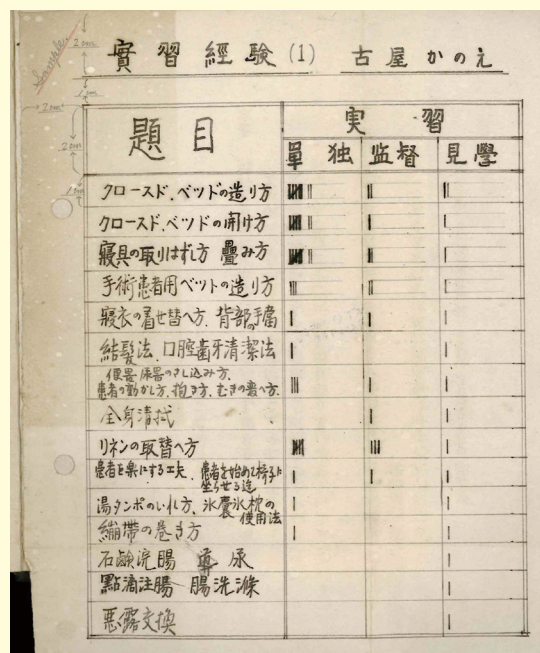 Sample
2cm
1cm
2cm
2cm
1cm
實習経験(1) 古屋かのえ
題目
実習
單独 监督 見學
クロースド.ベツドの造り方
クロースド.ベツドの開け方
寝具の取りはずし方 疊み方
手術患者用ベットの造り方
寝衣の着せ替へ方.背部の手當
結髪法.口腔歯牙清潔法
便器 尿器のさし込み方.
患者の動かし方.抱き方.むきの変へ方.
全身清拭
リネンの取替へ方
患者を楽にする工夫.患者を始めて椅子に
坐らせる迄
湯タンポのいれ方.氷嚢氷枕の
使用法
繃帯の巻き方
石鹸浣腸 導尿
點滴注腸 腸洗滌
悪露交換